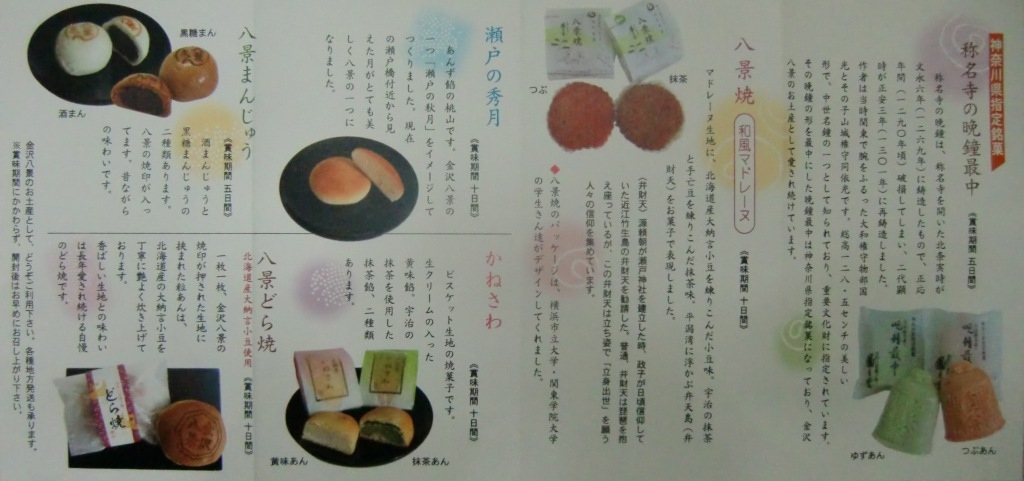 神奈川県指定銘菓
称名寺の晩鐘最中
《賞味期間 五日間》
称名寺の晩鐘は、称名寺を開いた北条実時が
文永六年（一二六九年）に鋳造したもので、正応
年間（一二九〇年頃）破損してしまい、二代顕
時が正安三年（一三〇一年）に再鋳造しました。
作者は当時関東で腕をふるった大和権守物部国
光とその子山城権守同依光です。総高一二八・五センチの美しい
形で、中世名鐘の一つとして知られており、重要文化財に指定されています。
その晩鐘の形を最中にした晩鐘最中は神奈川県指定銘菓になっており、金沢
八景のお土産として愛され続けています。
ゆずあん
つぶあん
八景焼
和風マドレーヌ
《賞味期間 十日間》
マドレーヌ生地に、北海道産大納言小豆を練りこんだ小豆味、宇治の抹茶
と手亡豆を練りこんだ抹茶味。平潟湾に浮かぶ弁天島（弁
財天）をお菓子で表現しました。
（弁財天）源頼朝が瀬戸神社を建立した時、政子が日頃信仰して
いた近江竹生島の弁財天を勧請した。普通、弁財天は琵琶を抱
え座っているが、この弁財天は立ち姿で「立身出世」を願う
人々の信仰を集めています。
◆八景焼のパッケージは、横浜市立大学・関東学院大学
の学生さん達がデザインしてくれました。
つぶ
抹茶
瀬戸の秀月
《賞味期間 十日間》
あんず餡の桃山です。金沢八景の
一つ「瀬戸の秋月」をイメージして
つくりました。現在
の瀬戸橋付近から見
えた月がとても美
しく八景の一つに
なりました。
かねさわ
《賞味期間 十日間》
ビスケット生地の焼菓子です。
生クリームの入った
黄味餡、宇治の
抹茶を使用した
抹茶餡、二種類
あります。
黄味あん
抹茶あん
八景まんじゅう
《賞味期間 五日間》
酒まんじゅうと
黒糖まんじゅうの
二種類あります。
八景の焼印が入っ
てます。昔ながら
の味わいです。
黒糖まん
酒まん
八景どら焼
北海道産大納言小豆使用
《賞味期間 十日間》
一枚一枚、金沢八景の
焼印が押された生地に
挟まれた粒あんは、
北海道産の大納言小豆を
丁寧に艶よく炊き上げて
おります。
香ばしい生地との味わい
は長年愛され続ける自慢
のどら焼です。
どら焼
金沢八景のお土産として、どうぞご利用下さい。各種地方発送も承ります。
※賞味期間にかかわらず、開封後はお早めにお召し上がり下さい。